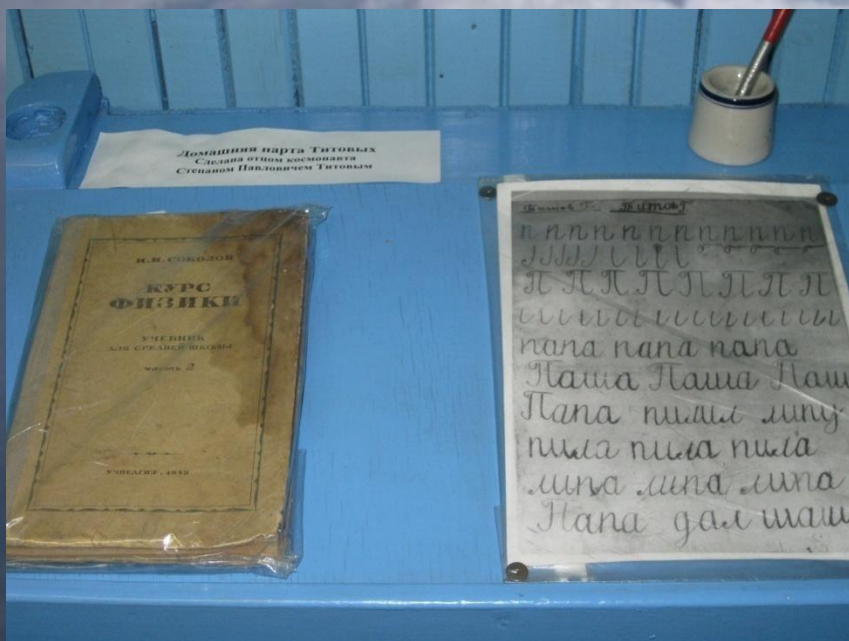 Домашняя парта Титовых
Сделана отцом космонавта
Степаном Павловичем Титовым
И.И. СОКОЛОВ
КУРС
ФИЗИКИ
УЧЕБНИК
ДЛЯ СРЕДНЕЙ ШКОЛЫ
часть 2
УЧПЕДГИЗ
Титов Г. Титов Г
п п п п п п п п п п п п
П П П П П П П П
папа папа папа
Паша Паша Паш
Папа пилил липу
пила пила пила
липа липа липа
Папа дал шаш